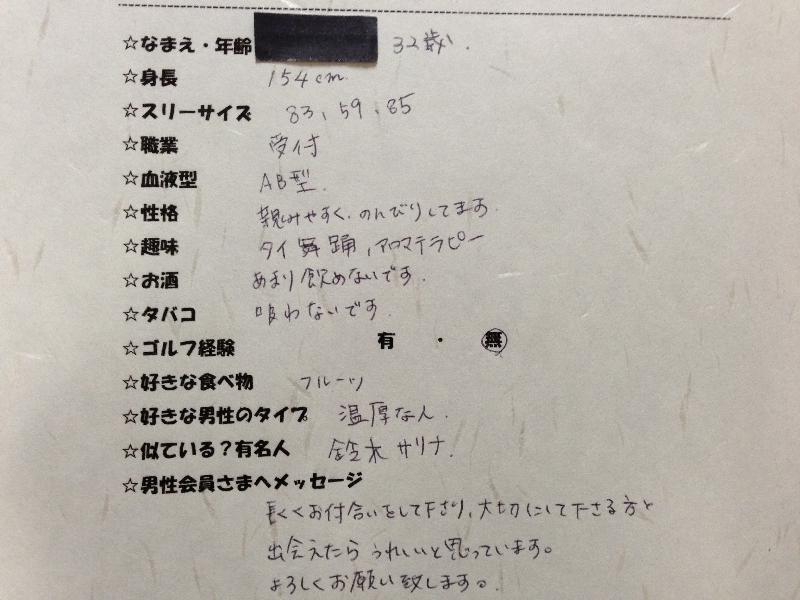 ☆なまえ・年齢 32歳.
☆身長 154cm
☆スリーサイズ 83、59、85
☆職業 受付
☆血液型 AB型.
☆性格 親みやすく、のんびりしてます.
☆趣味 タイ舞踊、アロマテラピー
☆お酒 あまり飲めないです.
☆タバコ 吸わないです.
☆ゴルフ経験 有・無
☆好きな食べ物 フルーツ
☆好きな男性のタイプ 温厚な人.
☆似ている?有名人 鈴木サリナ.
☆男性会員さまへメッセージ
長くお付合いをして下さり、大切にして下さる方と
出会えたら うれいいと思っています。
よろしくお願い致します。